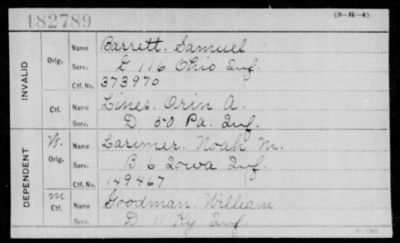 182789 (3-H-4)
INVALID
Orig. Name Barrett, Samuel
Serv. G 116 Ohio Inf.
Ctf. No. 373970
Ctf. Name Lines, Orin A.
Serv. D 50 Pa. Inf.
DEPENDENT
W. Orig. Name Larimer, Noah M.
Serv. B 6 Iowa Inf.
Ctf. No. 149467
M Ctf. Name Goodman, William
Serv. D 11 Ky Inf.